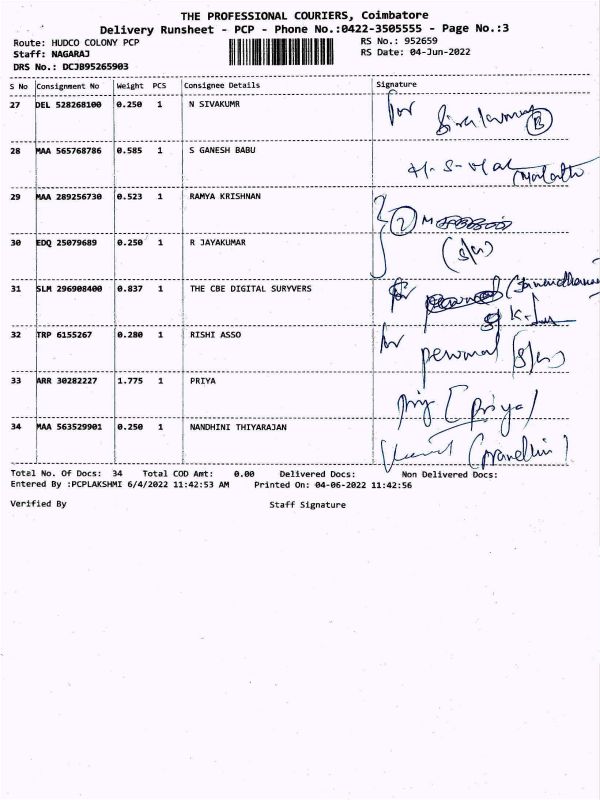 THE PROFESSIONAL COURIERS, Coimbatore
Delivery Runsheet - PCP - Phone No.:0422-3505555 - Page No.:3
Route: HUDCO COLONY PCP RS No.: 952659
Staff: NAGARAJ RS Date: 04-Jun-2022
DRS No.: DCJB95265903
S No Consignment No Weight PCS Consignee Details Signature
27 DEL 528268100 0.250 1 N SIVAKUMR for
28 MAA 565768786 0.585 1 S GANESH BABU
29 MAA 289256730 0.523 1 RAMYA KRISHNAN
30 EDQ 25079689 0.250 1 R JAYAKUMAR
31 SLM 296908400 0.837 1 THE CBE DIGITAL SURYVERS for
32 TRP 6155267 0.280 1 RISHI ASSO for personal
33 ARR 30282227 1.775 1 PRIYA (Priya)
34 MAA 563529901 0.250 1 NANDHINI THIYARAJAN
Total No. Of Docs: 34 Total COD Amt: 0.00 Delivered Docs: Non Delivered Docs:
Entered By :PCPLAKSHMI 6/4/2022 11:42:53 AM Printed On: 04-06-2022 11:42:56
Verified By Staff Signature